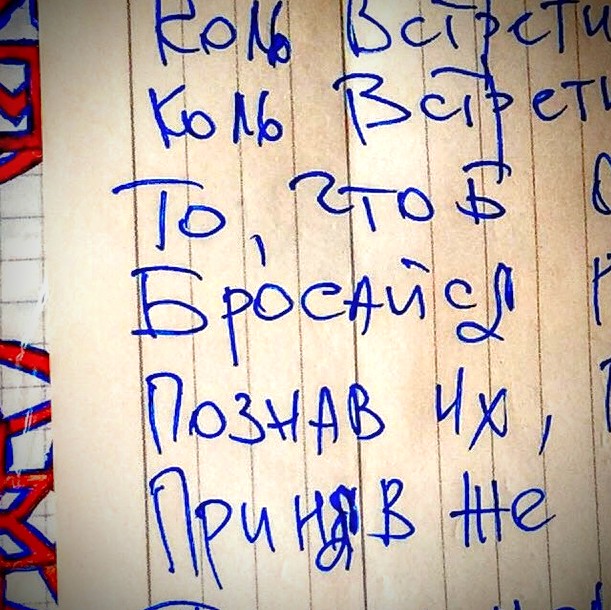 Коль Встрети
Коль Встрети
То, чтоб
Бросайся
Познав их,
Приняв же